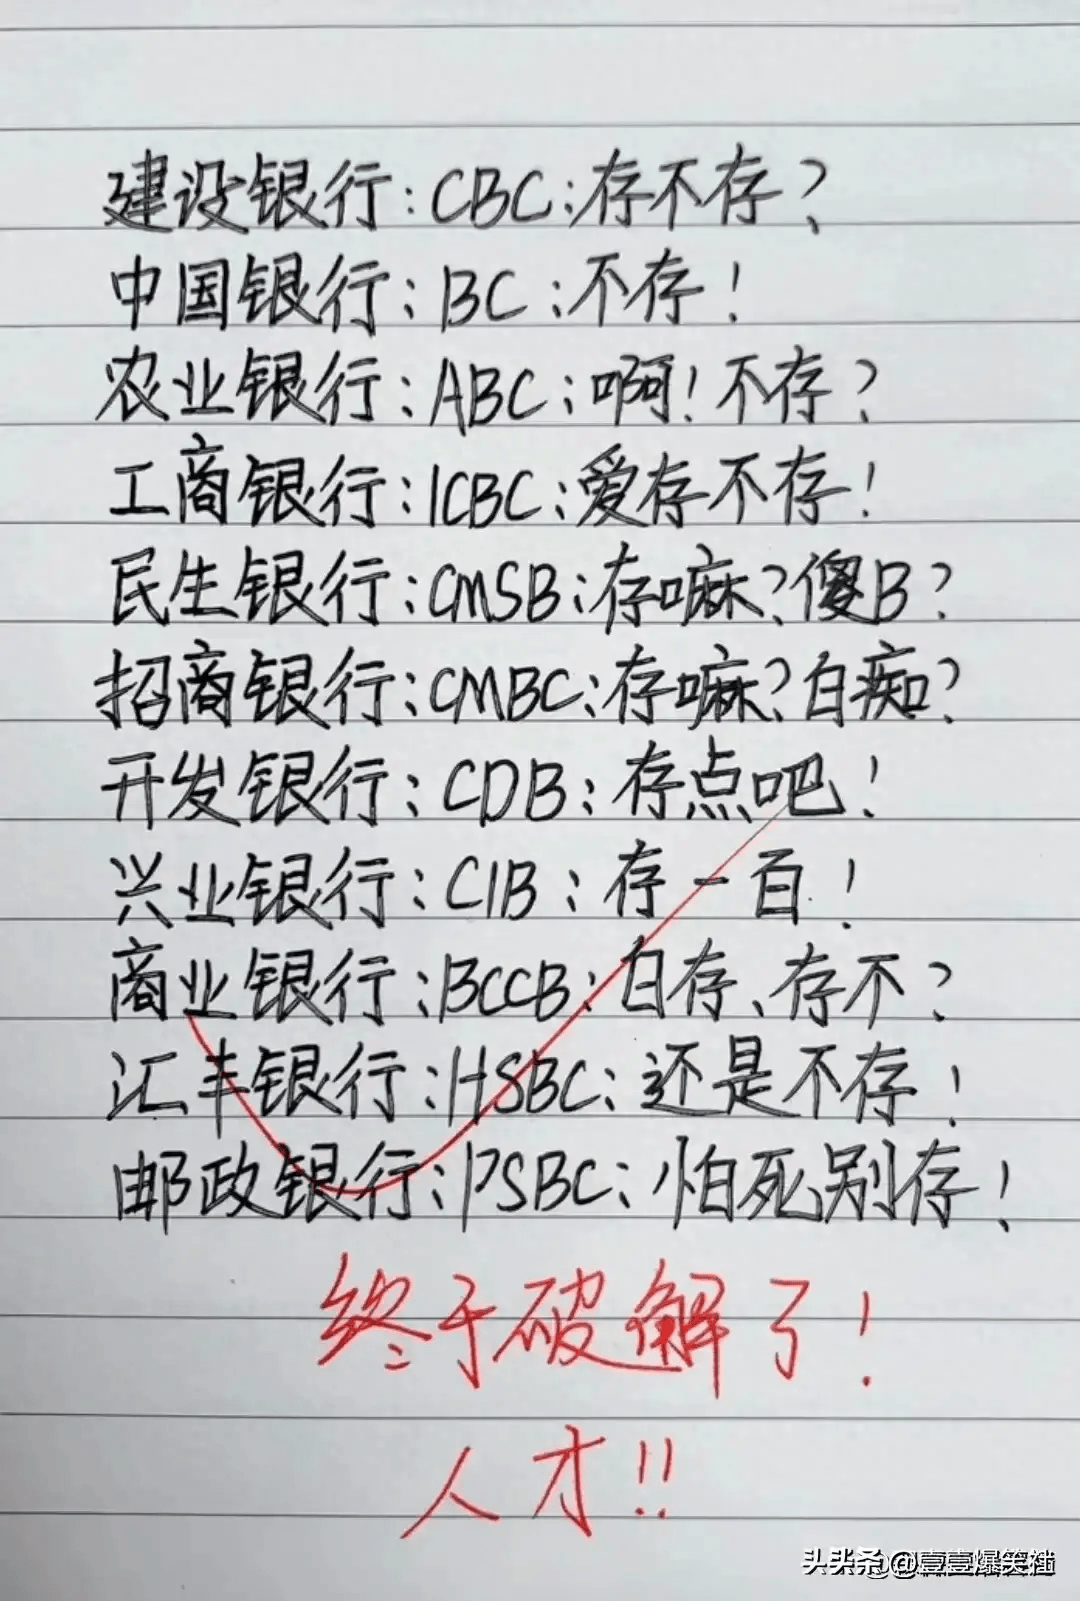 建设银行:CBC:存不存?
中国银行:BC:不存!
农业银行:ABC:啊!不存?
工商银行:ICBC:爱存不存!
民生银行:CMSB:存嘛?傻B?
招商银行:CMBC:存嘛?白痴?
开发银行:CDB:存点吧!
兴业银行:CIB:存一百!
商业银行:BCCB:白存、存不?
汇丰银行:HSBC:还是不存!
邮政银行:PSBC:怕死别存!
终于破解了!
人才!!
头条@壹壹爆笑社